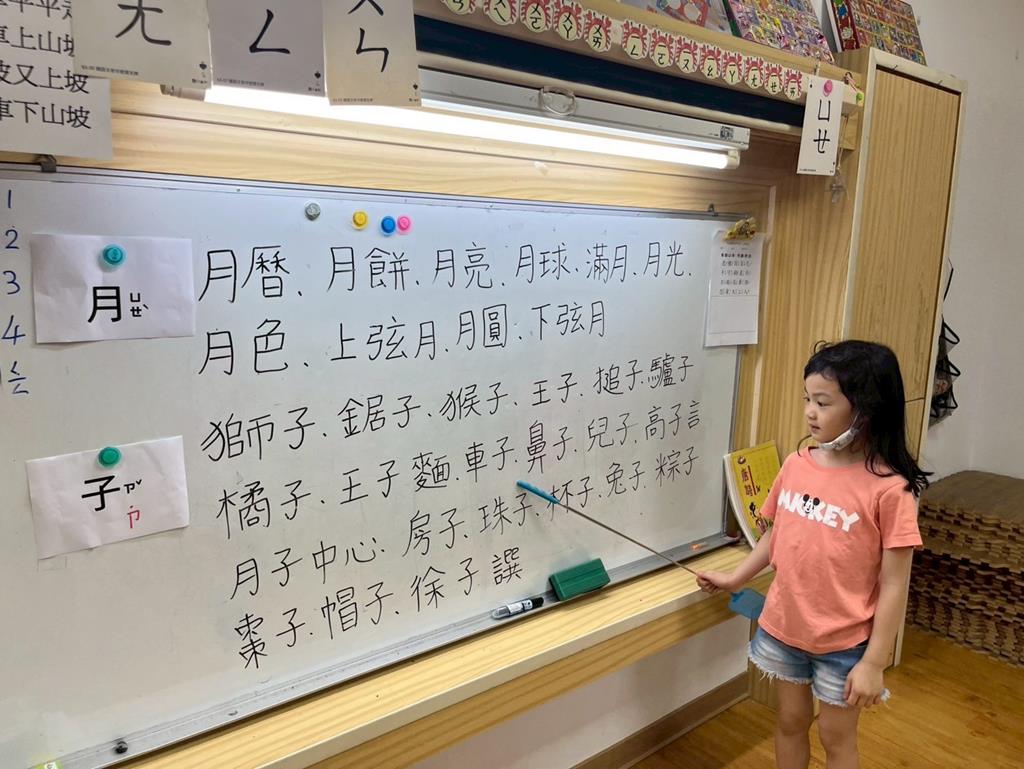 車上山坡
又上坡
車下山坡
ㄤ
ㄥ
ㄣ
ㄩㄝ
1
2
3
4
月ㄩㄝˋ
月曆、月餅、月亮、月球、滿月、月光、
月色、上弦月、月圓、下弦月
獅子、鋸子、猴子、王子、搥子、驢子
子ㄗˇ
ㄗ
橘子、王子麵、車子、鼻子、兒子、高子言
月子中心、房子、珠子、杯子、兔子、粽子
棗子、帽子、徐子譔
MICKEY